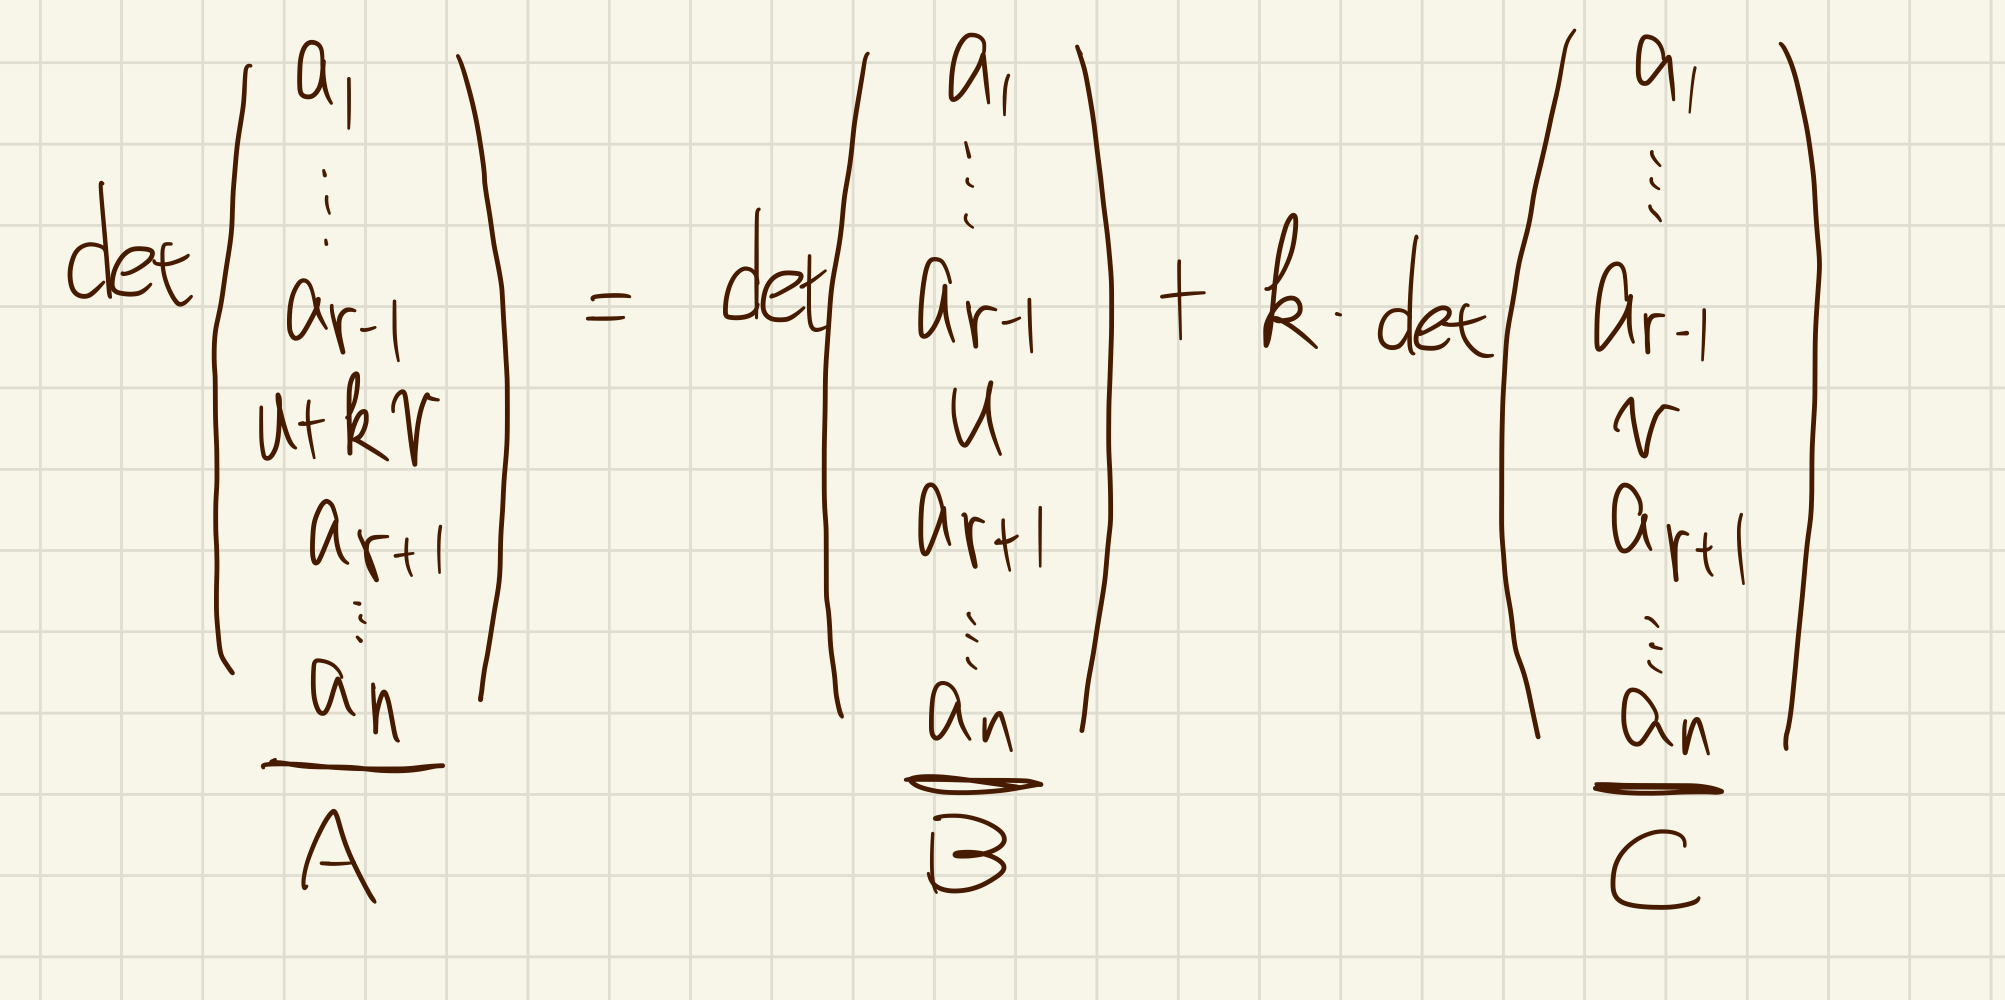 det ( a₁ ⋮ a_{r-1} u+kv a_{r+1} ⋮ a_n ) = det ( a₁ ⋮ a_{r-1} u a_{r+1} ⋮ a_n ) + k · det ( a₁ ⋮ a_{r-1} v a_{r+1} ⋮ a_n )
A B C